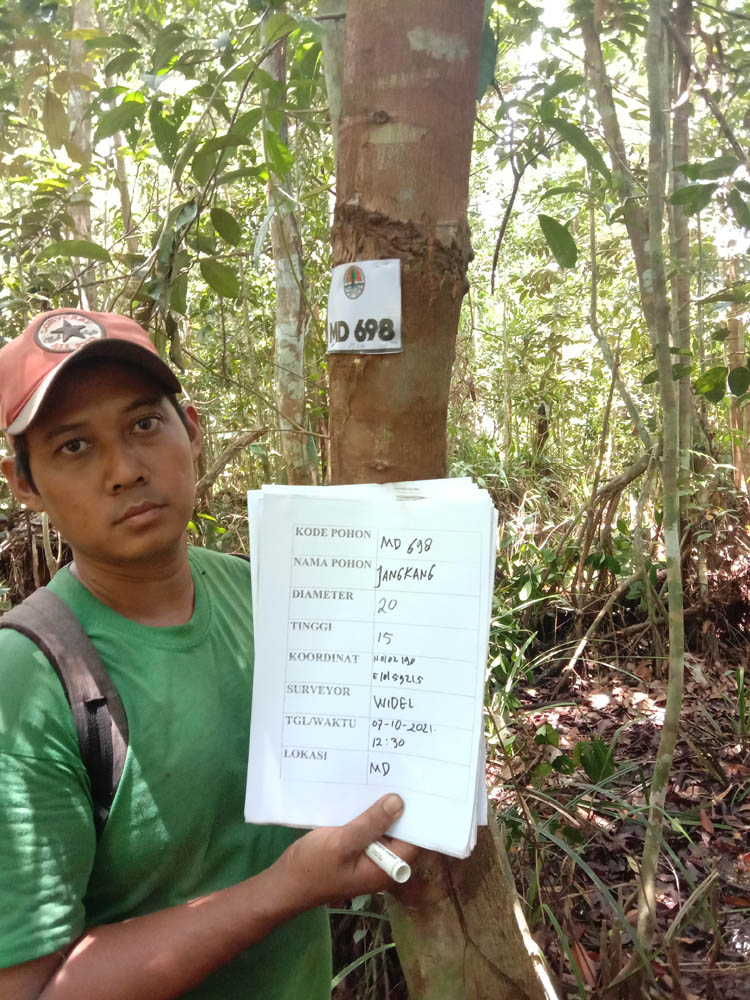 MD 698
KODE POHON MD 698
NAMA POHON JANGKANG
DIAMETER 20
TINGGI 15
KOORDINAT N0102190
E10159215
SURVEYOR WIDEL
TGL/WAKTU 07-10-2021.
12:30
LOKASI MD